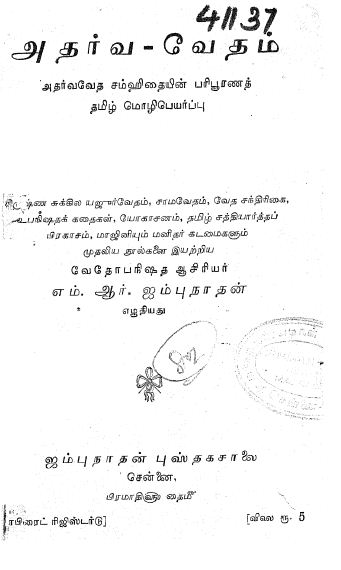 41137
அதர்வ - வேதம்
அதர்வவேத சம்ஹிதையின் பரிபூரணத்
தமிழ் மொழிபெயர்ப்பு
சுக்கில யஜுர்வேதம், சாமவேதம், வேத சந்திரிகை,
உபநிஷதக் கதைகள், யோகாசனம், தமிழ் சத்தியார்த்தப்
பிரகாசம், மாஜினியும் மனிதர் கடமைகளும்
முதலிய நூல்களை இயற்றிய
வேதோபநிஷத ஆசிரியர்
எம். ஆர். ஜம்புநாதன்
எழுதியது
ஜம்புநாதன் புஸ்தகசாலை
சென்னை,
பிரமாதிளு தைமீ
ரிஜிஸ்டர்டு]
[விலை ரூ. 5